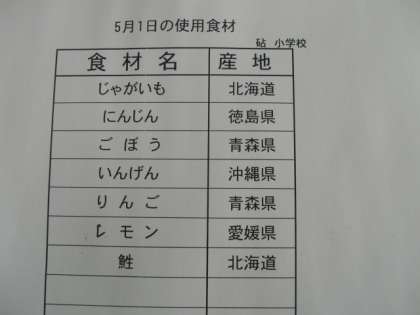 5月1日の使用食材
砧 小学校
食材名 産地
じゃがいも 北海道
にんじん 徳島県
ごぼう 青森県
いんげん 沖縄県
りんご 青森県
レモン 愛媛県
鮏 北海道